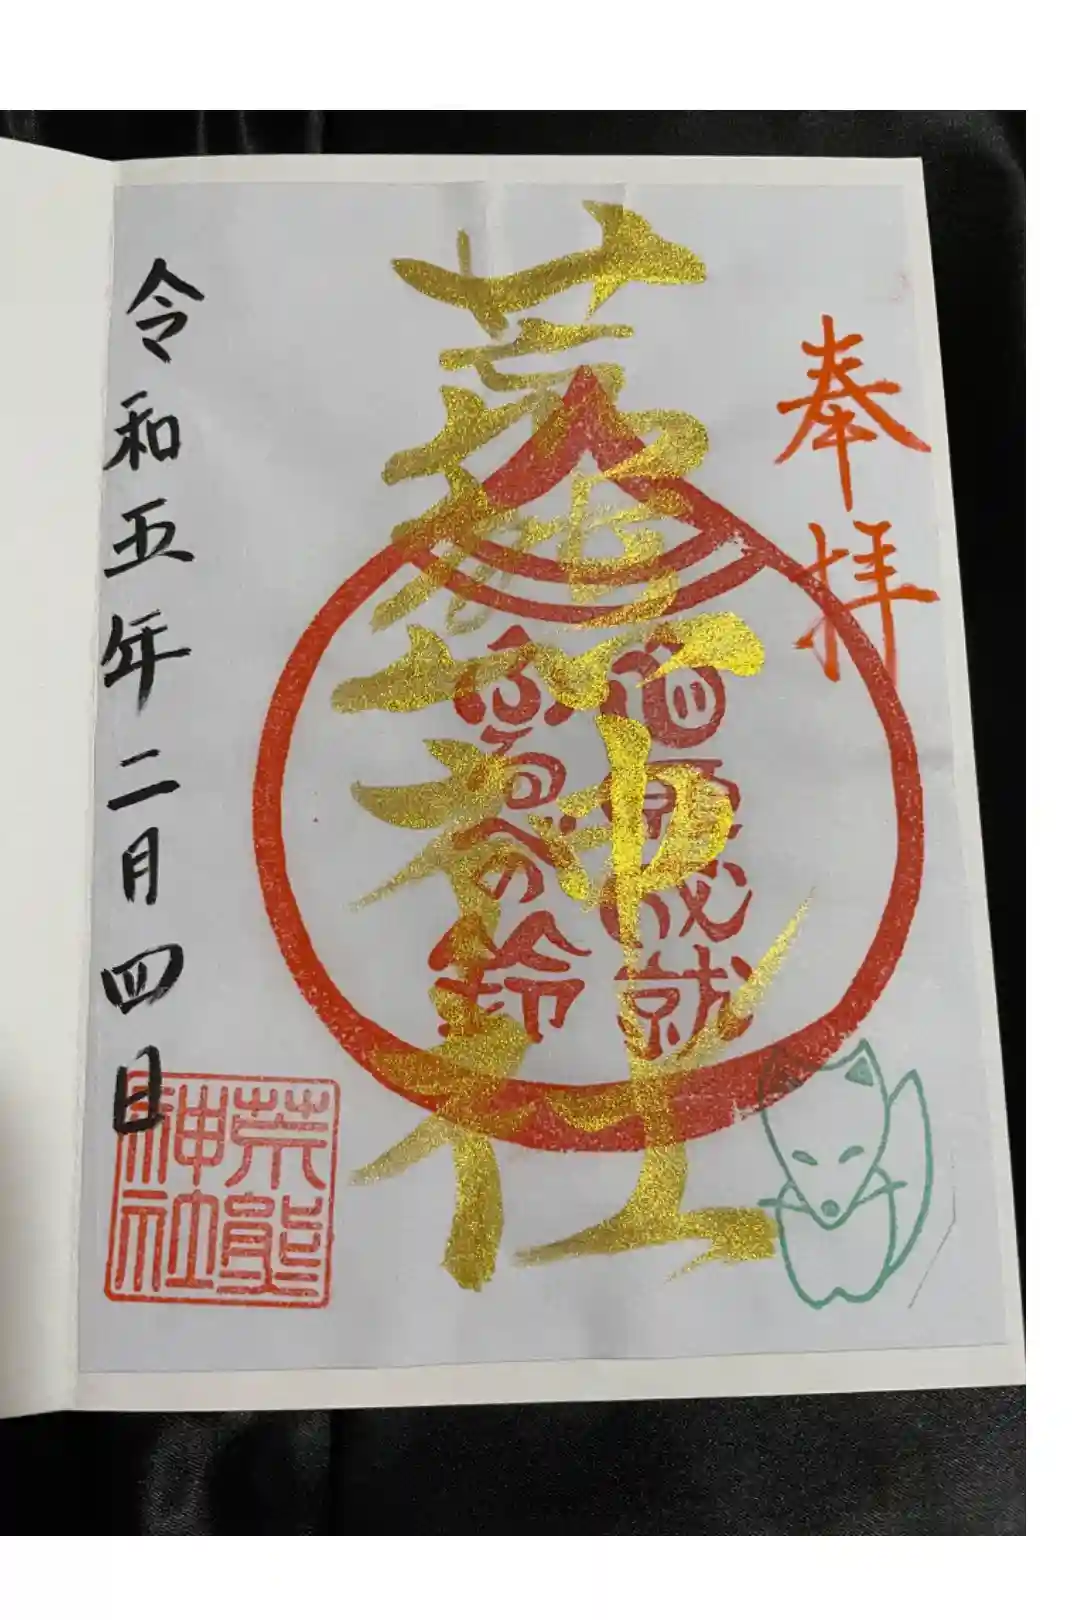 奉拝
荒熊神社
心願成就
ふるべの鈴
令和五年二月四日
荒熊
神社